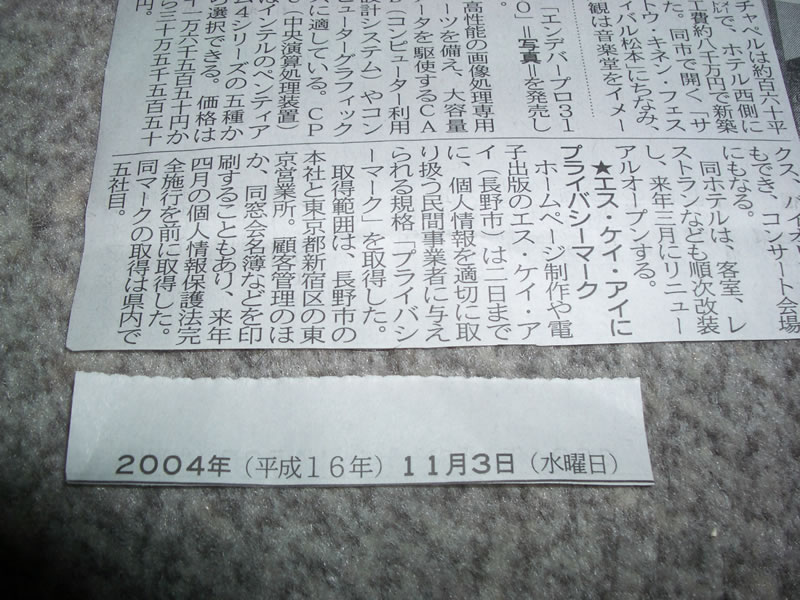 チャペルは約百六十平
で、ホテル西側に
工費約八千万円で新築
た。同市で開く「サ
トウ・キネン・フェス
ィバル松本」にちなみ、
観は音楽堂をイメー
「エンデバープロ31
０」＝写真＝を発売し
高性能の画像処理専用
ーツを備え、大容量
ータを駆使するCA
D（コンピューター利用
設計システム）やコン
ピューターグラフィック
スに適している。CP
U（中央演算処理装置）
はインテルのペンティア
ム4シリーズの五種か
ら選択できる。価格は
万六千五百五十円か
ら三十万五千五百五十
円。
クス、バイオ
もでき、コンサート会場
にもなる。
同ホテルは、客室、レ
ストランなども順次改装
し、来年三月にリニュー
アルオープンする。
★エス・ケイ・アイに
プライバシーマーク
ホームページ制作や電
子出版のエス・ケイ・ア
イ（長野市）は二日まで
に、個人情報を適切に取
り扱う民間事業者に与え
られる規格「プライバシ
ーマーク」を取得した。
取得範囲は、長野市の
本社と東京都新宿区の東
京営業所。顧客管理のほ
か、同窓会名簿などを印
刷することもあり、来年
四月の個人情報保護法完
全施行を前に取得した。
同マークの取得は県内で
五社目。
2004年（平成16年）11月3日（水曜日）